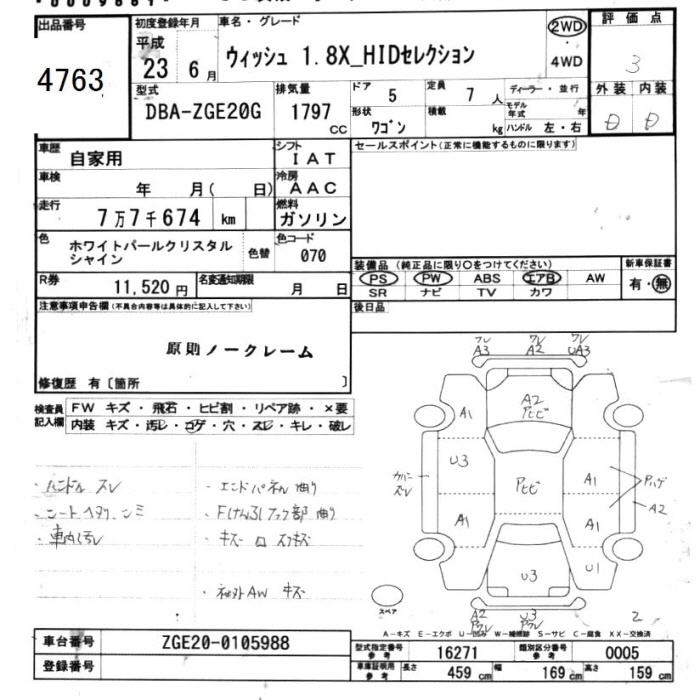 出品番号
4763
初度登録年月
平成
23 6 月
車名・グレード
ウィッシュ 1.8X_HIDセレクション
2WD
4WD
評価点
3
外装 内装
D D
型式
DBA-ZGE20G
排気量
1797
CC
ドア
5
定員
7
人
形状
ワゴン
積載
kg
ディーラー・並行
モデル年式
年
ハンドル 左・右
車歴
自家用
シフト
IAT
車検
年 月( 日)
冷房
AAC
走行
7万7千674 km
燃料
ガソリン
色
ホワイトパールクリスタル
シャイン
色替
色コード
070
R券
11,520円
名変通知期限
月 日
セールスポイント(正常に機能するものに限ります)
装備品 (純正品に限り○をつけてください)
新車保証書
PS PW ABS エアB AW
SR ナビ TV カワ
有・無
後日品
注意事項申告欄(不具合内容等は具体的に記入して下さい)
原則ノークレーム
修復歴 有〔箇所 〕
検査員
記入欄
FW キズ・飛石・ヒビ割・リペア跡・×要
内装 キズ・汚レ・コゲ・穴・スレ・キレ・破レ
・ハンドル スレ
・シートヘタリ シミ
・車内汚レ
・エンドパネル 曲り
キズ
ワレ
A3
ワレ
A2
ワレ
UA3
A2
アヒビ
A1
U3
A1
アヒビ
A1
A1
U1
カバー
スレ
Pハゲ
A2
U3
A2
U3
2
スペア
A-キズ E-エクボ U-凹み W-補修跡 S-サビ C-腐食 XX-交換済
車台番号
ZGE20-0105988
登録番号
型式指定番号
参考
16271
類別区分番号
参考
0005
車庫証明用
参考
長さ
459 cm
幅
169 cm
高さ
159 cm